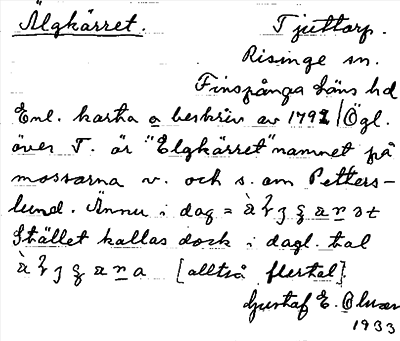 Älgkärret. Tjuttorp.
Risinge sn.
Finspånga läns hd
Enl. karta o beskriv av 1792 / Ögl.
över T. är "Elgkärret" namnet på
mossarna v. och s. om Petters-
lund. Ännu i dag =
Stället kallas dock i dagl. tal
[alltså flertal].
Gustaf E. Olsson
1933